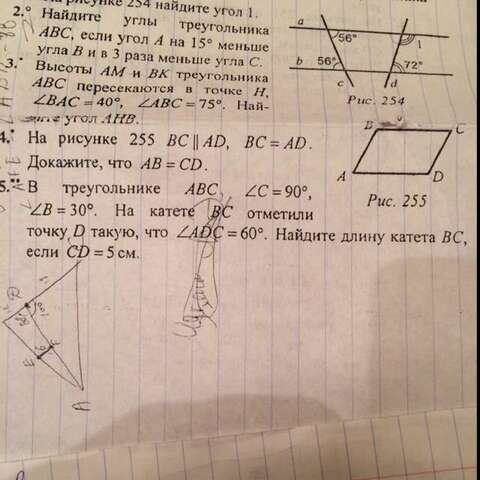 На рисунке 254 найдите угол 1.
2.° Найдите углы треугольника
ABC, если угол A на 15° меньше
угла B и в 3 раза меньше угла C.
3.° Высоты AM и BK треугольника
ABC пересекаются в точке H,
∠BAC = 40°, ∠ABC = 75°. Най-
дите угол AHB.
a
56°
1
b
56°
72°
c
d
Рис. 254
4.° На рисунке 255 BC ∥ AD, BC = AD.
Докажите, что AB = CD.
B
C
A
D
Рис. 255
5.°° В треугольнике ABC ∠C = 90°,
∠B = 30°. На катете BC отметили
точку D такую, что ∠ADC = 60°. Найдите длину катета BC,
если CD = 5 см.
A